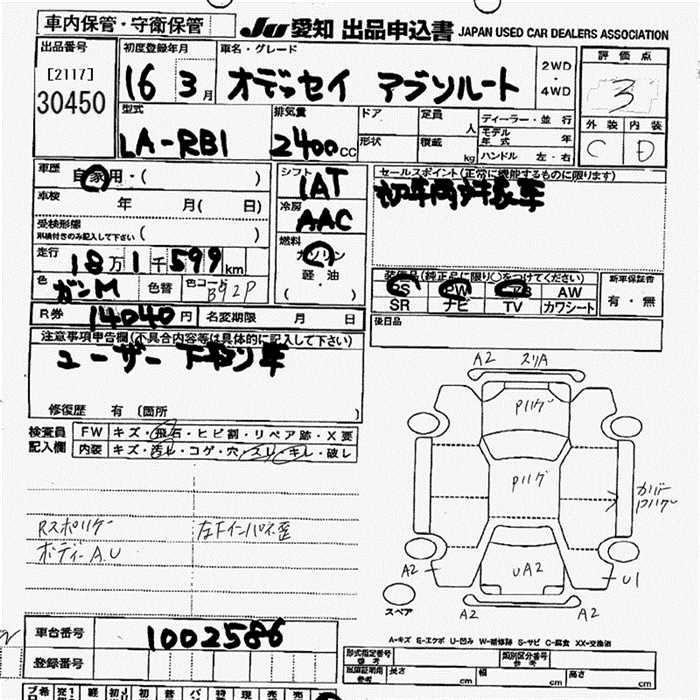 車内保管・守衛保管
JU 愛知 出品申込書 JAPAN USED CAR DEALERS ASSOCIATION
出品番号
[2117]
30450
初度登録年月
16 3月
車名・グレード
オデッセイ アブソルート
2WD
・
4WD
評価点
3
外装 内装
C D
型式
LA-RB1
排気量
2400cc
ドア
形状
定員 人
積載 kg
ディーラー・並行
モデル年式 年
ハンドル 左・右
車歴
自家用・( )
車検 年 月( 日)
受検形態
車検付きのみ記入して下さい ( )
走行
18万1千599km
色
ガンM
色替
色コード
B92P
シフト
IAT
冷房
AAC
燃料
ガソリン
軽・油
( )
セールスポイント(正常に機能するものに限ります)
装備品(純正品に限り○をつけてください)
PS PW AW
SR ナビ TV カワシート
新車保証書
有・無
後日品
R券 14040円 名変期限 月 日
注意事項申告欄(不具合内容等は具体的に記入して下さい)
ユーザー下取り車
修復歴 有 〔箇所 〕
検査員
記入欄
FW キズ・飛石・ヒビ割・リペア跡・X要
内装 キズ・汚れ・コゲ・穴・スリ・キレ・破し
Rスポリゲ
ボディーA.U
左Fインパネ歪
A2 スリA
Pハゲ
Pハゲ
カバー
A2
UA2
U1
A2 A2
スペア
A-キズ E-エクボ U-凹み W-補修跡 S-サビ C-腐食 XX-交換済
車台番号
1002586
登録番号
形式指定番号
参考
類別区分番号
参考
出庫証明用
参考
長さ cm
幅 cm
高さ cm